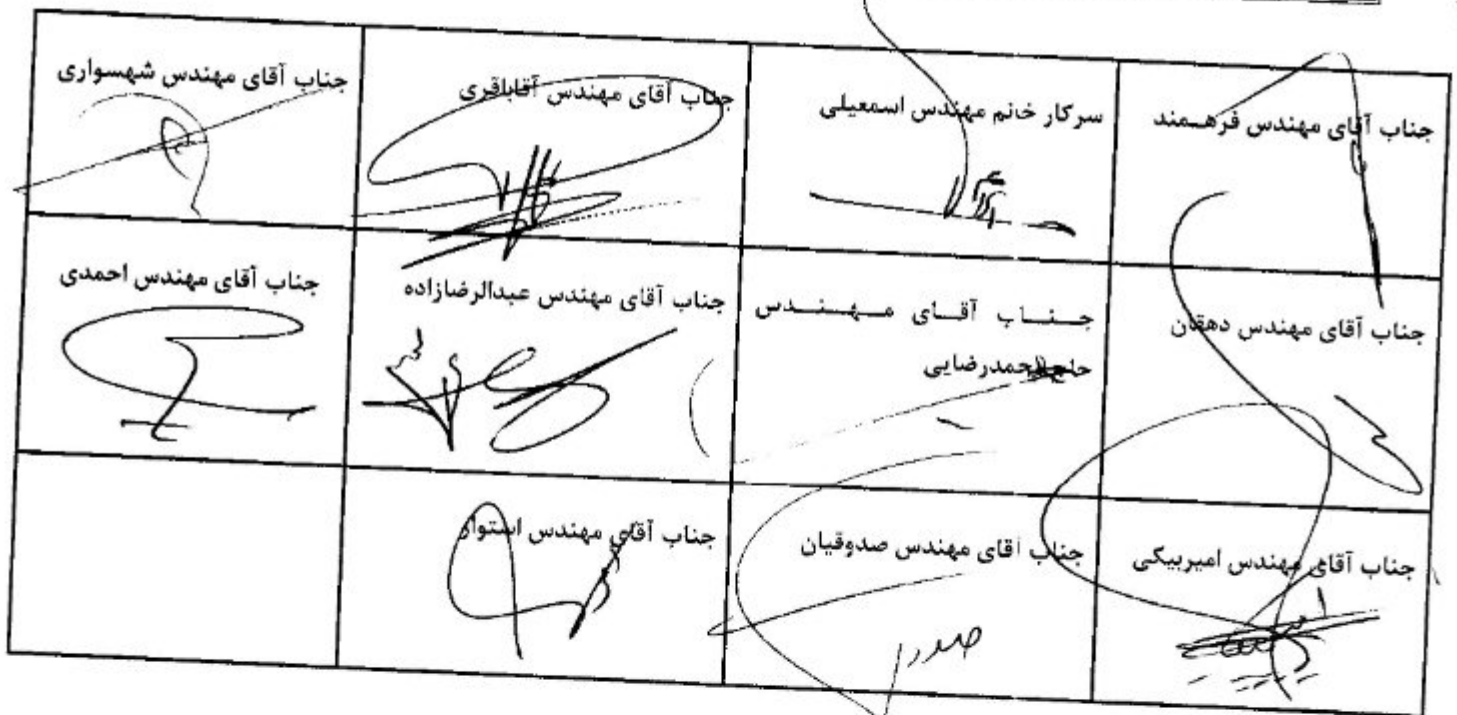 جناب آقای مهندس فرهـمند
سرکار خانم مهندس اسمعیلی
جناب آقای مهندس آقاباقری
جناب آقای مهندس شهسواری
جناب آقای مهندس دهقان
جـنـاب آقـای مـهـنـدس
حاج محمدرضایی
جناب آقای مهندس عبدالرضازاده
جناب آقای مهندس احمدی
جناب آقای مهندس امیربیکی
جناب آقای مهندس صدوقیان
جناب آقای مهندس استوار